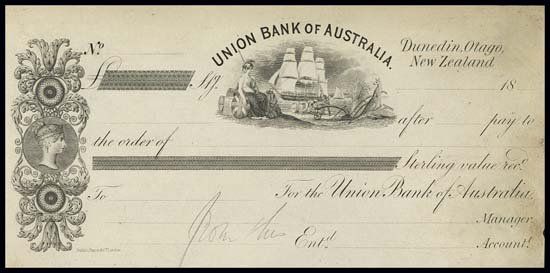 UNION BANK OF AUSTRALIA.
Dunedin, Otago,
New Zealand
No.
£ Stg. 18
after pay to
the order of
Sterling value recd.
To For the Union Bank of Australia,
Manager.
Entd. Accountt.